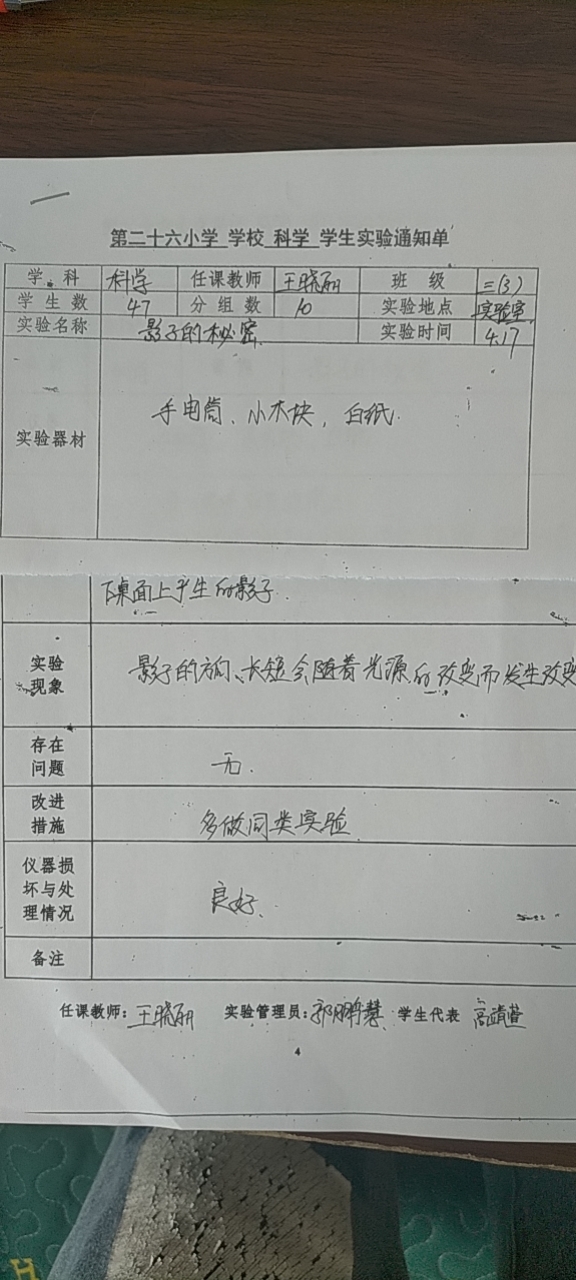 第二十六小学 学校 科学 学生实验通知单
学科 科学 任课教师 王晓丽 班级 三(3)
学生数 47 分组数 10 实验地点 实验室
实验名称 影子的秘密 实验时间 4.17
实验器材 手电筒、小木块，白纸.
下桌面上产生的影子.
实验现象 影子的方向、长短会随着光源的改变而发生改变
存在问题 无.
改进措施 多做同类实验
仪器损坏与处理情况 良好、
备注
任课教师：王晓丽 实验管理员： 学生代表
4
H